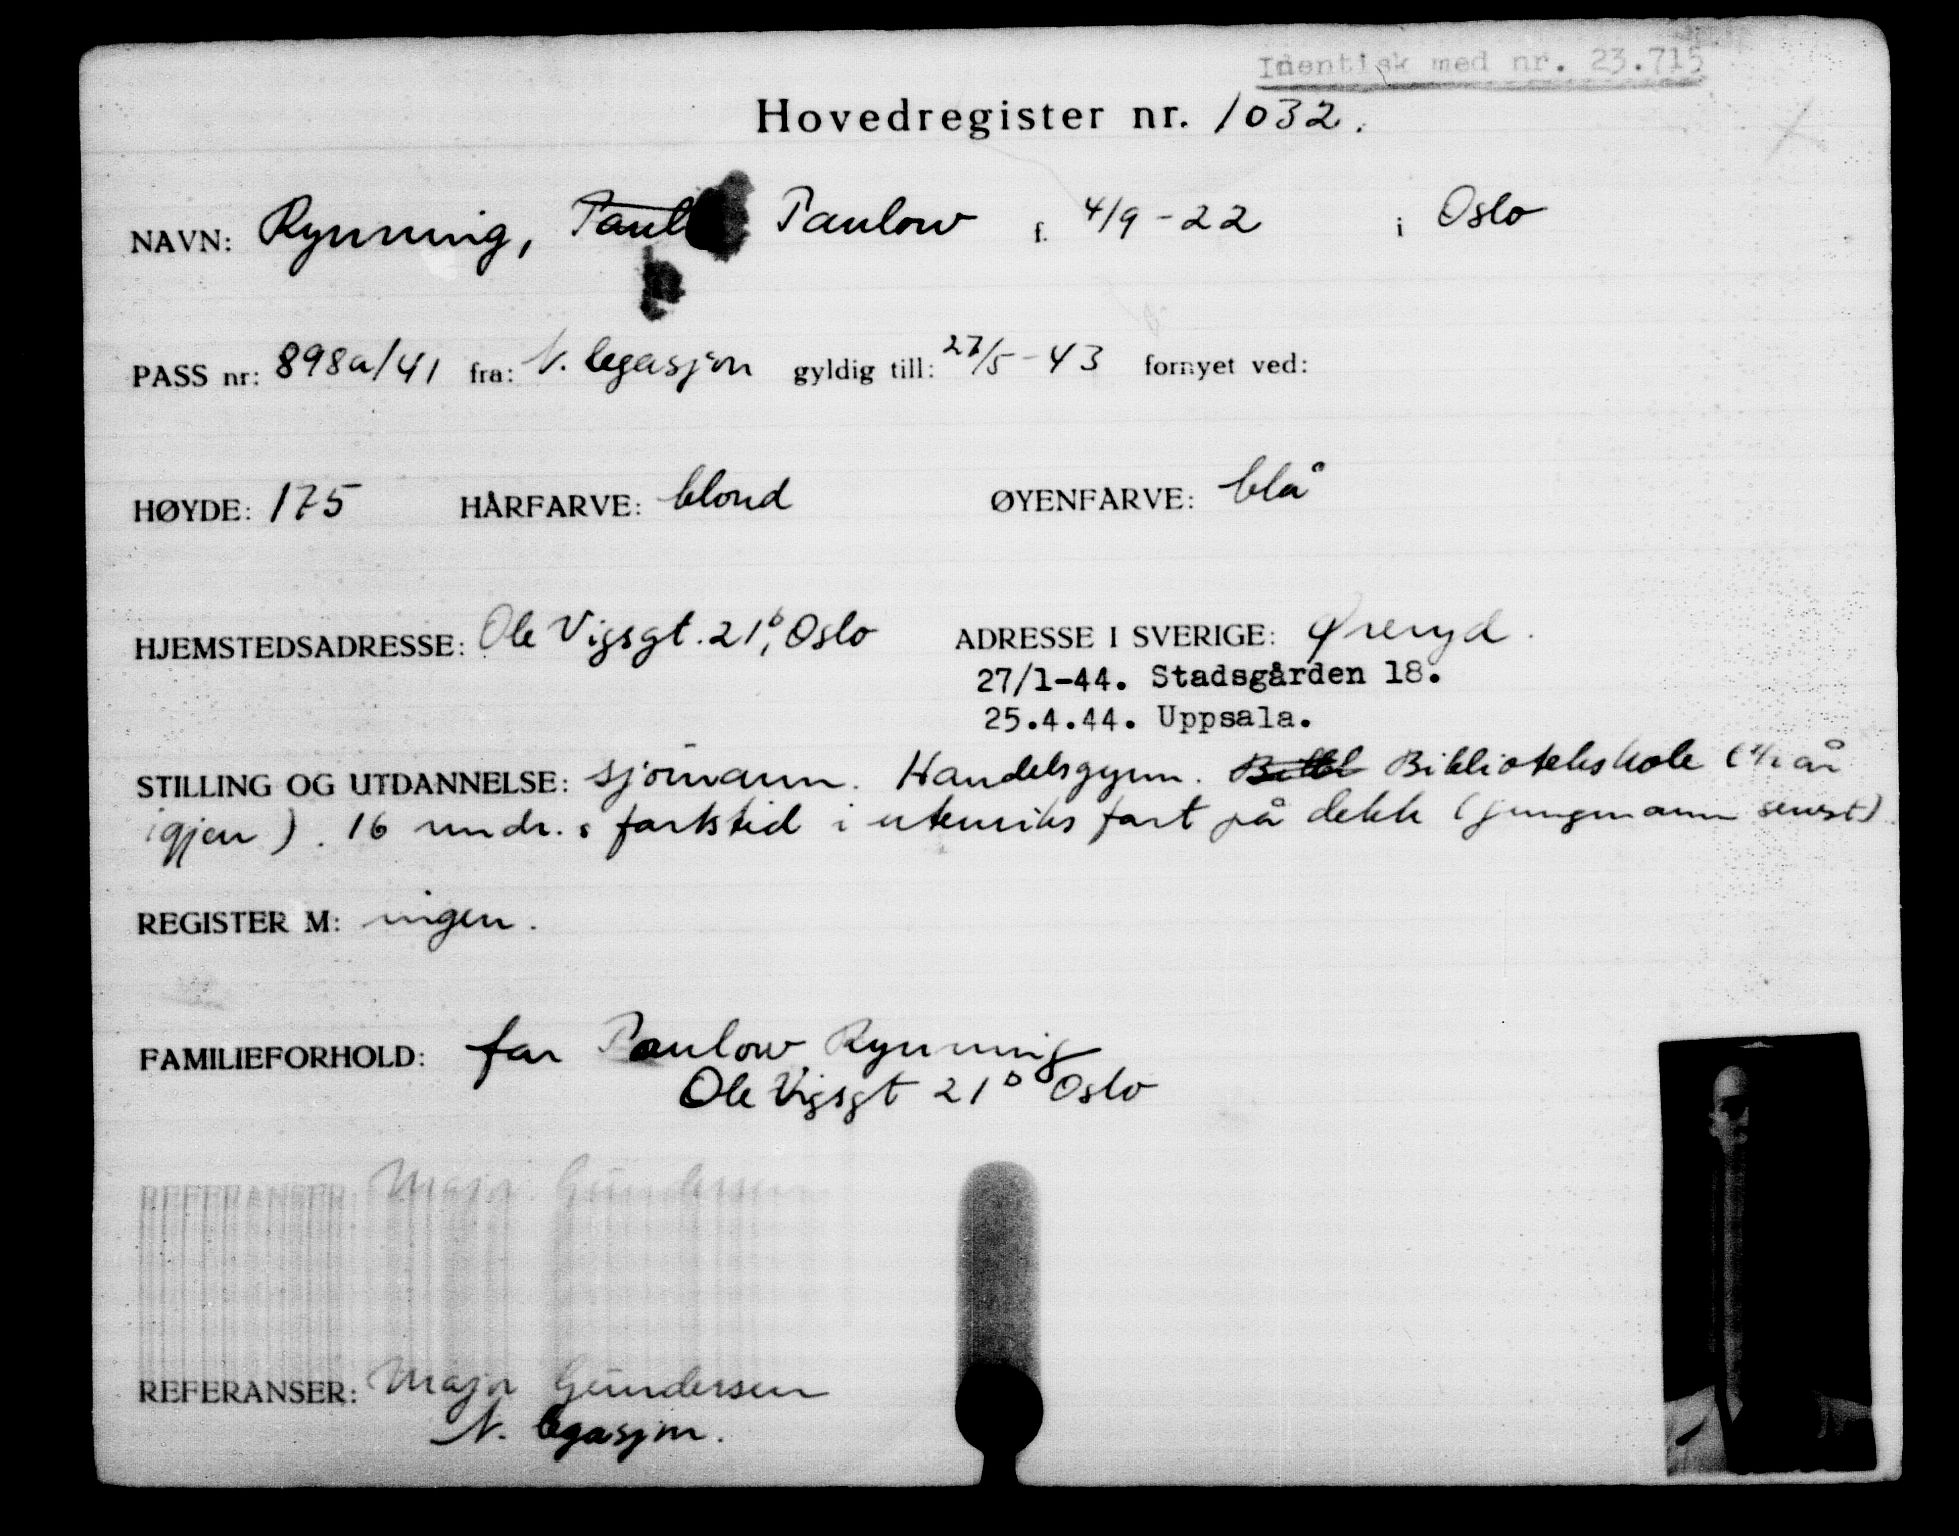 Identisk med nr. 23.715
Hovedregister nr. 1032.
NAVN: Rynning, Paulow f. 4/9-22 i Oslo
PASS nr: 898a/41 fra: N. legasjon gyldig till: 27/5-43 fornyet ved:
HØYDE: 175 HÅRFARVE: blond ØYENFARVE: blå
HJEMSTEDSADRESSE: Ole Vigsgt. 21b, Oslo ADRESSE I SVERIGE: Øreryd.
27/1-44. Stadsgården 18.
25.4.44. Uppsala.
STILLING OG UTDANNELSE: sjömann. Handelsgymn. Bibliotekskole ( år
igjen). 16 mndr. fartstid i utenriks fart på dekk (jungmann senest)
REGISTER M: ingen.
FAMILIEFORHOLD: far Paulow Rynning
Ole Vigsgt 21b Oslo
REFERANSER: Major Gundersen
N. legasjon.